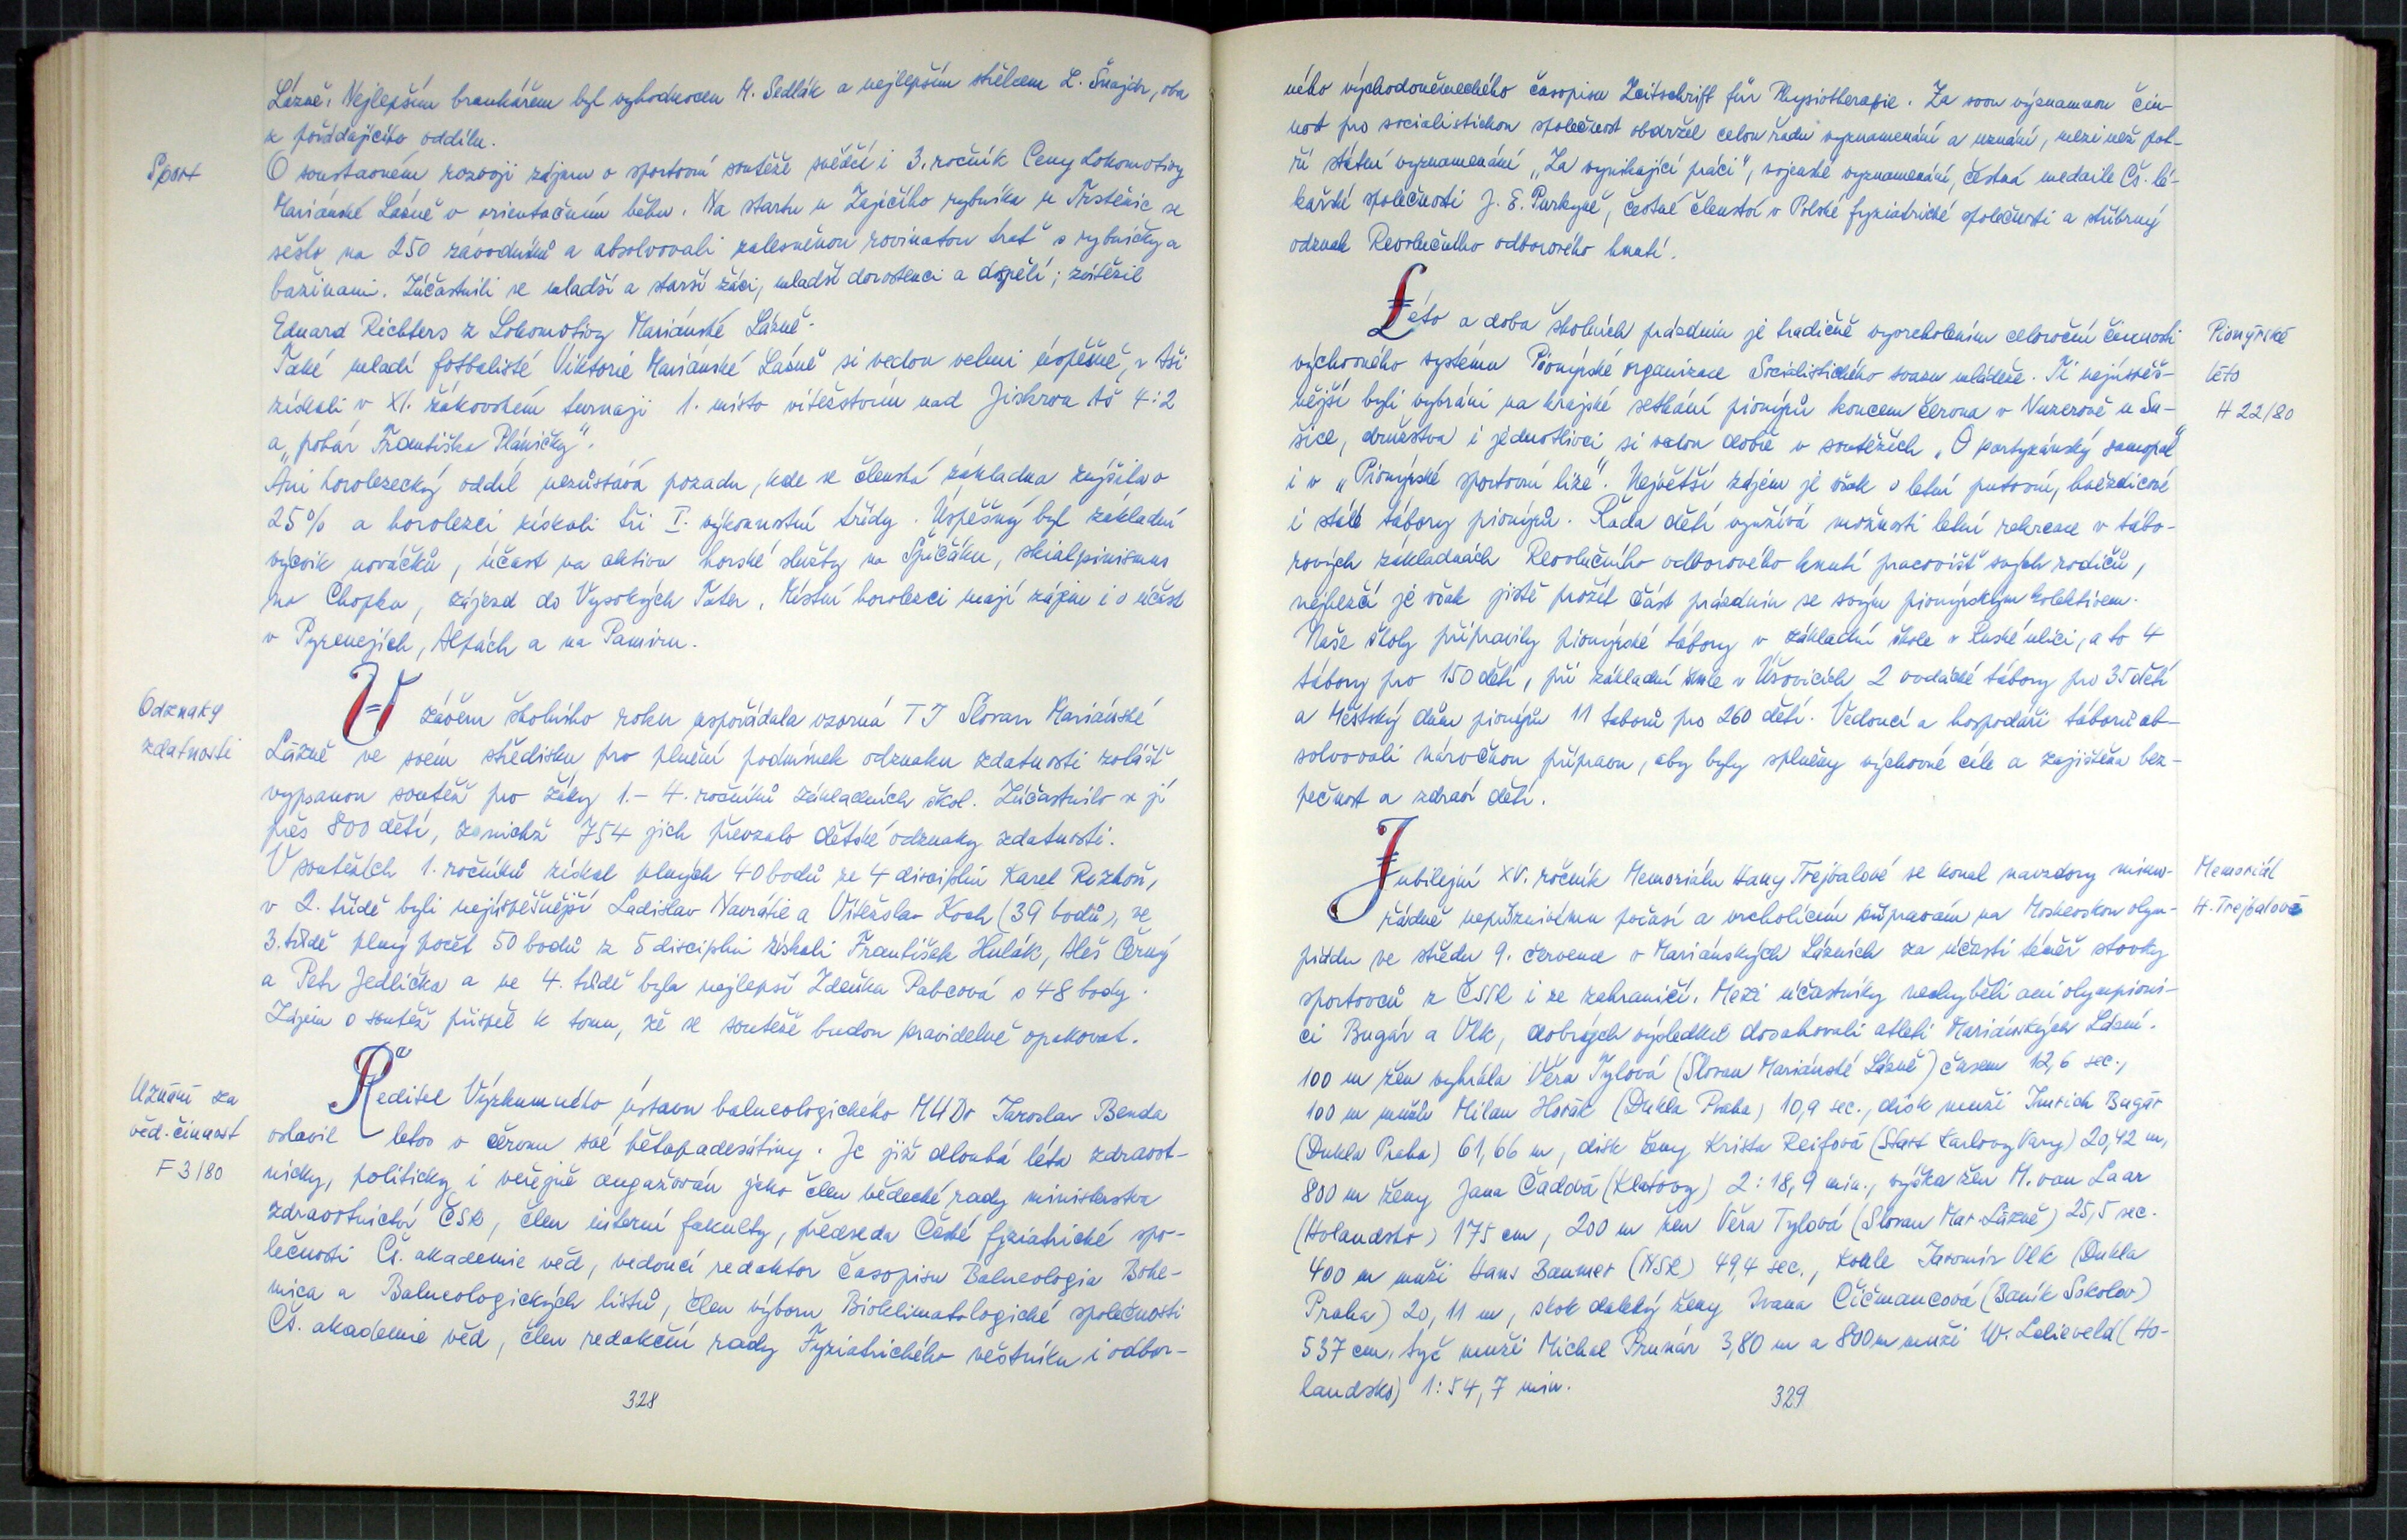 Lázně. Nejlepším brankářem byl vyhodnocen M. Sedlák a nejlepším střelcem L. Šnajdr, oba
z pořádajícího oddílu.
Sport
O soustavném rozvoji zájmu o sportovní soutěže svědčí i 3. ročník Ceny Lokomotivy
Mariánské Lázně v orientačním běhu. Na startu u Zaječího rybníka u Trstěnic se
sešlo na 250 závodníků a absolvovali zalesněnou rovinatou trať s rybníčky a
bažinami. Zúčastnili se mladší a starší žáci, mladší dorostenci a dospělí; zvítězil
Eduard Richters z Lokomotivy Mariánské Lázně.
Také mladí fotbalisté Viktorie Mariánské Lázně si vedou velmi úspěšně, v Aši
získali v XI. žákovském turnaji 1. místo vítězstvím nad Jiskrou Aš 4:2
a „pohár Františka Pláničky".
Ani horolezecký oddíl nezůstává pozadu, kde se členská základna zvýšila o
25% a horolezci získali tři I. výkonnostní třídy. Úspěšný byl základní
výcvik nováčků, účast na aktivu horské služby na Špičáku, skialpinismus
na Chopku, zájezd do Vysokých Tater. Místní horolezci mají zájem i o účast
v Pyrenejích, Alpách a na Pamíru.
Odznaky
zdatnosti
V závěru školního roku uspořádala vzorná TJ Slovan Mariánské
Lázně ve svém středisku pro plnění podmínek odznaku zdatnosti zvlášť
vypsanou soutěž pro žáky 1.- 4. ročníků základních škol. Zúčastnilo se jí
přes 800 dětí, z nichž 754 jich převzalo dětské odznaky zdatnosti.
V soutěžích 1. ročníků získal plných 40 bodů ze 4 disciplin Karel Rezkoň,
v 2. třídě byli nejúspěšnější Ladislav Navrátil a Vítězslav Koch (39 bodů), ve
3. třídě plný počet 50 bodů z 5 disciplin získali František Hulák, Aleš Černý
a Petr Jedlička a ve 4. třídě byla nejlepší Zdeňka Pabcová s 48 body.
Zájem o soutěž přispěl k tomu, že se soutěže budou pravidelně opakovat.
Uznání za
věd. činnost
F 3/80
Ředitel Výzkumného ústavu balneologického MUDr Jaroslav Benda
oslavil letos v červnu své pětapadesátiny. Je již dlouhá léta zdravot-
nicky, politicky i veřejně angažován jako člen vědecké rady ministerstva
zdravotnictví ČSR, člen interní fakulty, předseda České fyziatrické spo-
lečnosti Čs. akademie věd, vedoucí redaktor časopisu Balneologia Bohe-
mica a Balneologických listů, člen výboru Bioklimatologické společnosti
Čs. akademie věd, člen redakční rady Fyziatrického věstníku i odbor-
328
ného východoněmeckého časopisu Zeitschrift für Physiotherapie. Za svou významnou čin-
nost pro socialistickou společnost obdržel celou řadu vyznamenání a uznání, mezi něž pat-
ří státní vyznamenání „Za vynikající práci", vojenské vyznamenání, čestná medaile Čs. lé-
kařské společnosti J. E. Purkyně, čestné členství v Polské fyziatrické společnosti a stříbrný
odznak Revolučního odborového hnutí.
Léto a doba školních prázdnin je tradičně vyvrcholením celoroční činnosti
Pionýrské
léto
H 22/80
výchovného systému Pionýrské organizace Socialistického svazu mládeže. Ti nejúspěš-
nější byli vybráni na krajské setkání pionýrů koncem června v Nuzerově u Su-
šice, družstva i jednotlivci si vedou dobře v soutěžích „O partyzánský samopal"
i v „Pionýrské sportovní lize". Největší zájem je však o letní putovní, hvězdicové
i stálé tábory pionýrů. Řada dětí využívá možnosti letní rekreace v tábo-
rových základnách Revolučního odborového hnutí pracovišť svých rodičů,
nejhezčí je však jistě prožít část prázdnin se svým pionýrským kolektivem.
Naše školy připravily pionýrské tábory v základní škole v Ruské ulici, a to 4
tábory pro 150 dětí, při základní škole v Úšovicích 2 vodácké tábory pro 35 dětí
a Městský dům pionýrů 11 táborů pro 260 dětí. Vedoucí a hospodáři táborů ab-
solvovali náročnou přípravu, aby byly splněny výchovné cíle a zajištěna bez-
pečnost a zdraví dětí.
Jubilejní XV. ročník Memoriálu Hany Trejbalové se konal navzdory mimo-
Memoriál
H. Trejbalové
řádně nepříznivému počasí a vrcholícím přípravám na Moskevskou olym-
piádu ve středu 9. července v Mariánských Lázních za účasti téměř stovky
sportovců z ČSSR i ze zahraničí. Mezi účastníky nechyběli ani olympioni-
ci Bugár a Vlk, dobrých výsledků dosahovali atleti Mariánských Lázní.
100 m žen vyhrála Věra Tylová (Slovan Mariánské Lázně) časem 12,6 sec.,
100 m mužů Milan Horák (Dukla Praha) 10,9 sec., disk muži Imrich Bugár
(Dukla Praha) 61,66 m, disk ženy Krista Reifová (Start Karlovy Vary) 20,42 m,
800 m ženy Jana Čadová (Klatovy) 2:18,9 min., výška žen M. van Laar
(Holandsko) 175 cm, 200 m žen Věra Tylová (Slovan Mar. Lázně) 25,5 sec.
400 m muži Hans Baumer (NSR) 49,4 sec., koule Jaromír Vlk (Dukla
Praha) 20,11 m, skok daleký ženy Ivana Čičmancová (Baník Sokolov)
537 cm, tyč muži Michal Prunár 3,80 m a 800 m muži W. Lelieveld (Ho-
landsko) 1:54,7 min.
329